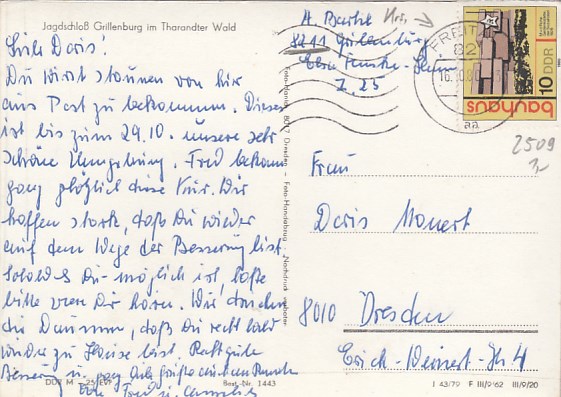 Jagdschloß Grillenburg im Tharandter Wald
Liebe Doris!
Du wirst staunen von hier
aus Post zu bekommen. Dieses
ist bis zum 29.10. unsere sehr
schöne Umgebung. Fred bekam
ganz plötzlich diese Kur. Wir
hoffen stark, daß Du wieder
auf dem Wege der Besserung bist.
Sobald es Dir möglich ist, laß
bitte von Dir hören. Wir drücken
die Daumen, daß Du recht bald
wieder zu Hause bist. Recht gute
Besserung u. ganz liebe Grüße
Fred u.
DDR M -
Best.-Nr. 1443
Foto-Handabzug
8017 Dresden
A.
8211 Grillenburg
Z. 25
FREIT
821
16
aa
bauhaus
10 DDR
2509
Frau
Doris Monert
8010 Dresden
Erich-Weinert-Str. 4
I 43/79 F III/9/62 III/9/20